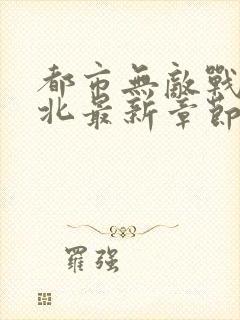 都市無敵戰
北最新章節
羅強